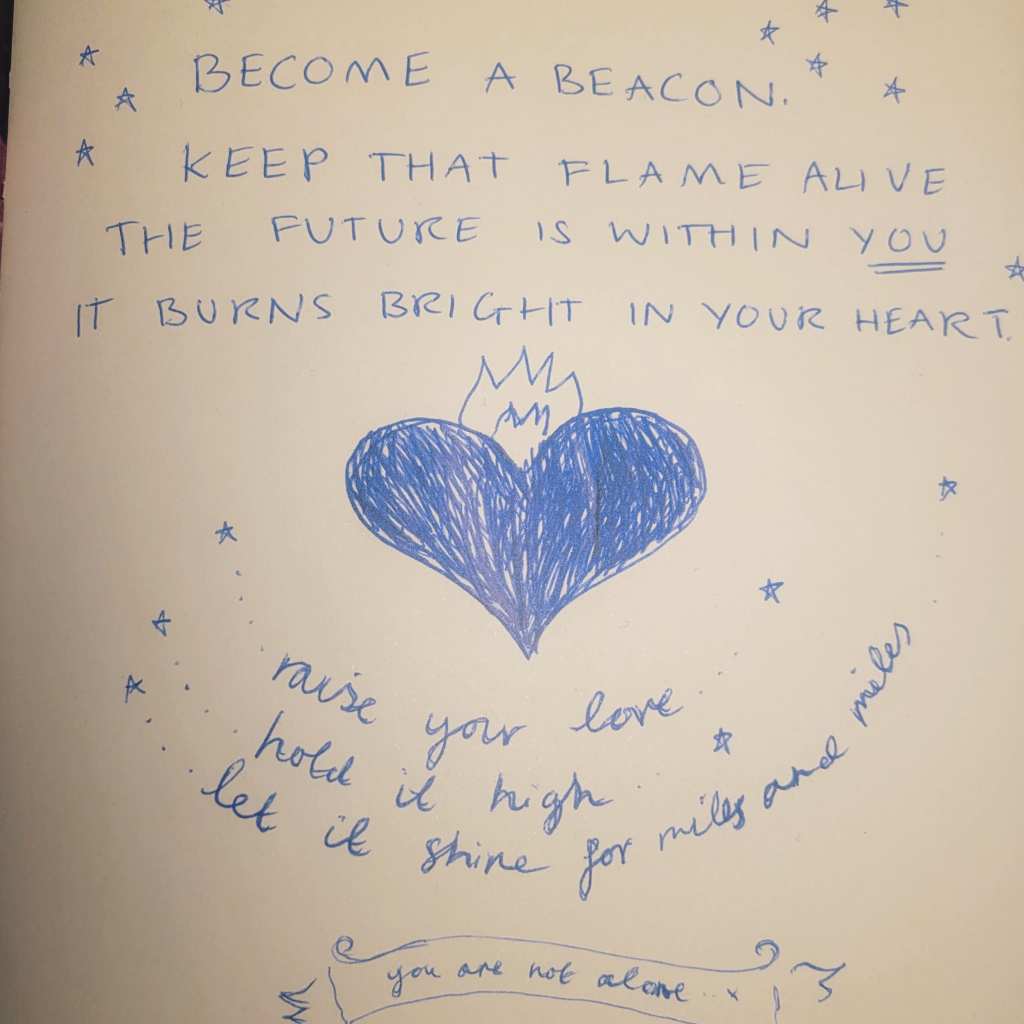 BECOME A BEACON.
KEEP THAT FLAME ALIVE
THE FUTURE IS WITHIN YOU
IT BURNS BRIGHT IN YOUR HEART.
raise your love
hold it high
let it shine for miles and miles
you are not alone.. x